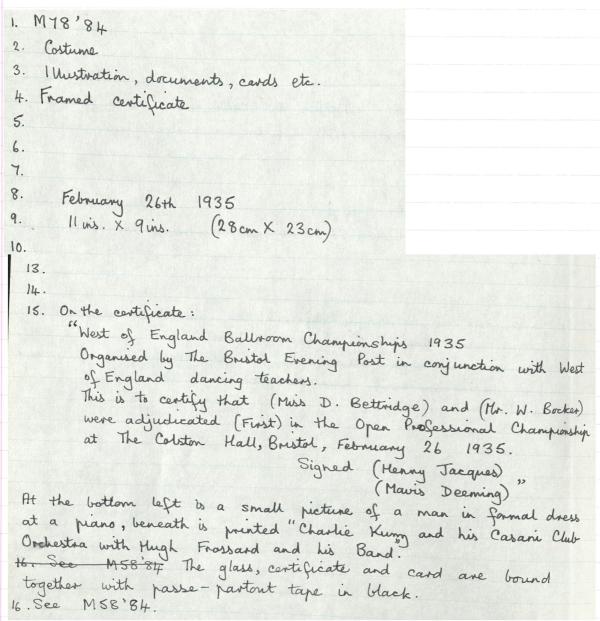 1. M78'84
2. Costume
3. Illustration, documents, cards etc.
4. Framed certificate
5.
6.
7.
8. February 26th 1935
9. 11 ins. X 9 ins. (28cm X 23cm)
10.
13.
14.
15. On the certificate:
"West of England Ballroom Championships 1935
Organised by The Bristol Evening Post in conjunction with West
of England dancing teachers.
This is to certify that (Miss D. Bettridge) and (Mr. W. Bocker)
were adjudicated (First) in the Open Professional Championship
at The Colston Hall, Bristol, February 26 1935.
Signed (Henny Jacques)
(Mavis Deeming)"
At the bottom left is a small picture of a man in formal dress
at a piano, beneath is printed "Charlie Kunz and his Casani Club
Orchestra with Hugh Frossard and his Band."
16. See M58'84 The glass, certificate and card are bound
together with passe-partout tape in black.
16. See M58'84.